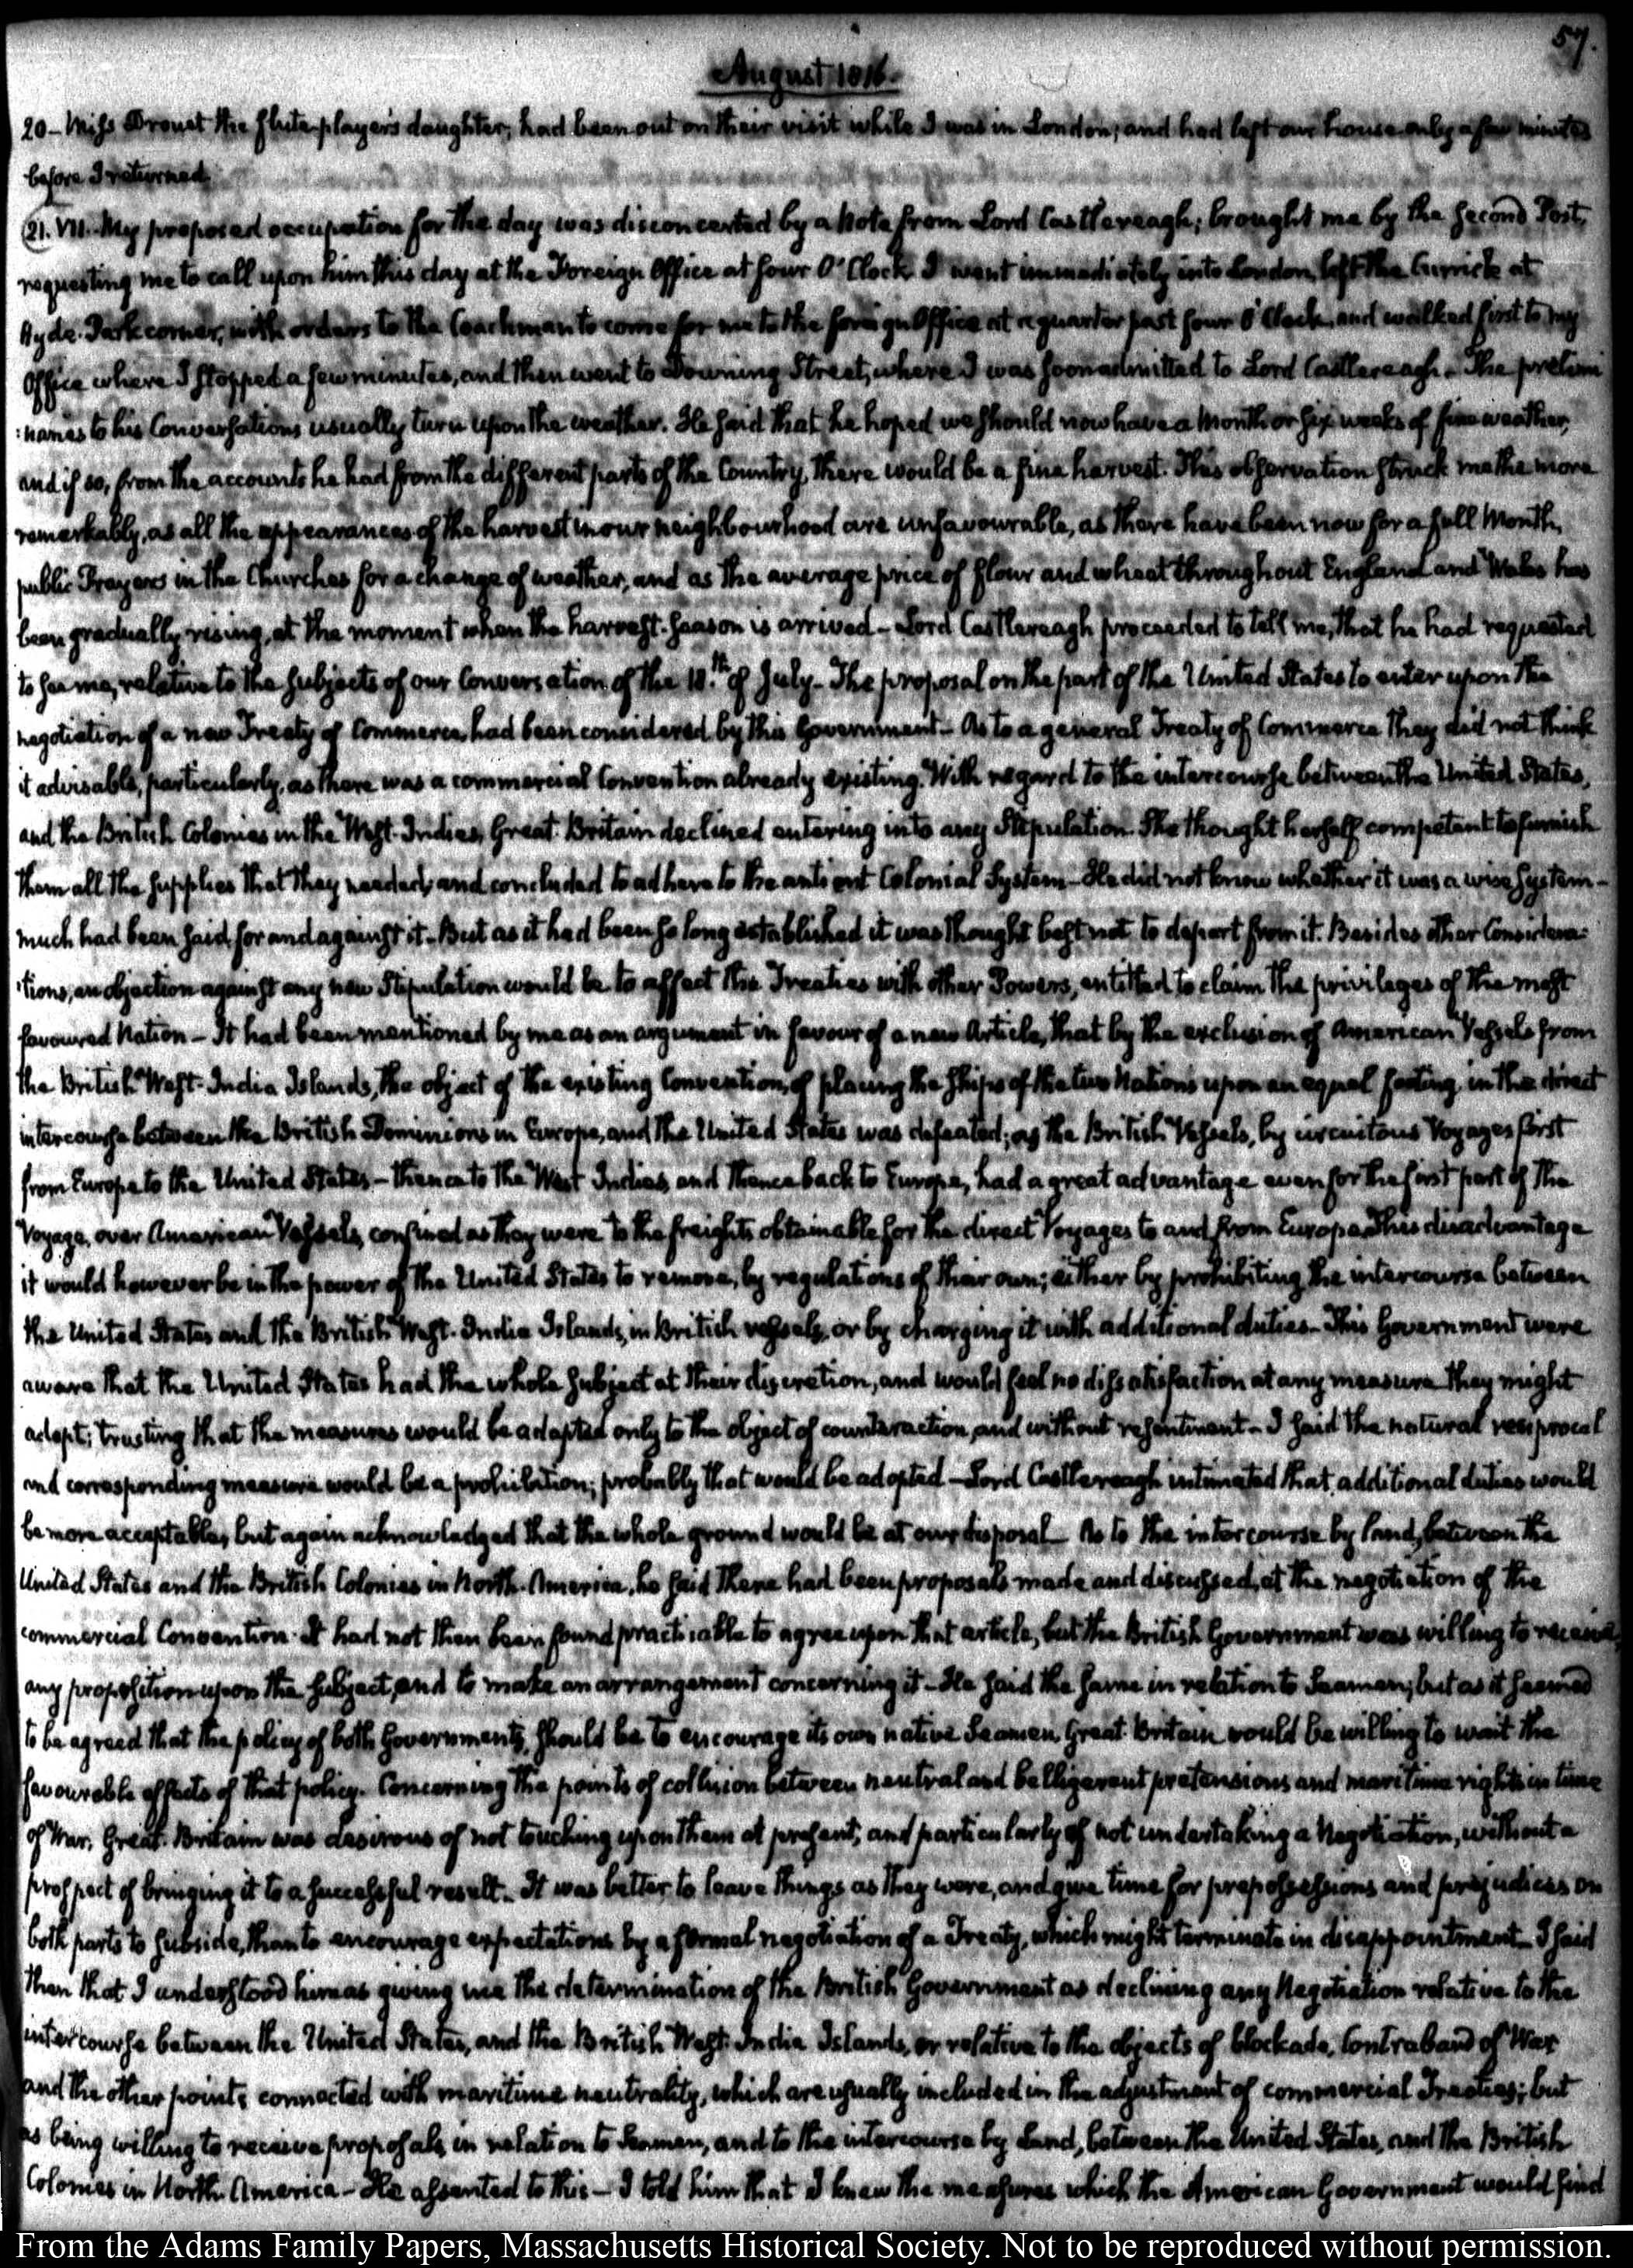 57.
August 1816.
20 – Miss Drouet the flute-player's daughter; had been out on their visit while I was in London; and had left our house only a few minutes
before I returned.
21. VII. My proposed occupation for the day was disconcerted by a Note from Lord Castlereagh; brought me by the second Post,
requesting me to call upon him this day at the Foreign Office at four O'Clock. I went immediately into London, left the Curricle at
Hyde-Park corner, with orders to the Coachman to come for me to the foreign Office at a quarter past four O'Clock, and walked first to my
Office where I stopped a few minutes, and then went to Downing Street, where I was soon admitted to Lord Castlereagh – The prelimi
:naries to his Conversations usually turn upon the weather. He said that he hoped we should now have a Month or six weeks of fine weather,
and if so, from the accounts he had from the different parts of the Country, there would be a fine harvest. This observation struck me the more
remarkably, as all the appearances of the harvest in our neighbourhood are unfavourable, as there have been now for a full Month,
public Prayers in the Churches for a change of weather, and as the average price of flour and wheat throughout England and Wales has
been gradually rising, at the moment when the harvest-season is arrived – Lord Castlereagh proceeded to tell me, that he had requested
to see me, relative to the subjects of our Conversation of the 18.th of July – The proposal on the part of the United States to enter upon the
negotiation of a new Treaty of Commerce, had been considered by this Government – As to a general Treaty of Commerce they did not think
it advisable, particularly, as there was a commercial Convention already existing. With regard to the intercourse between the United States,
and the British Colonies in the West-Indies, Great-Britain declined entering into any Stipulation. She thought herself competent to furnish
them all the supplies that they needed; and concluded to adhere to the antient Colonial System – He did not know whether it was a wise system –
much had been said for and against it – But as it had been so long established it was thought best not to depart from it. Besides other Considera:
:tions, an objection against any new Stipulation would be to affect the Treaties with other Powers, entitled to claim the privileges of the most
favoured Nation – It had been mentioned by me as an argument in favour of a new Article, that by the exclusion of American Vessels from
the British West-India Islands, the object of the existing Convention, of placing the ships of the two Nations upon an equal footing, in the direct
intercourse between the British Dominions in Europe, and the United States was defeated; as the British Vessels, by circuitous Voyages first
from Europe to the United States – thence to the West Indies, and thence back to Europe, had a great advantage even for the first part of the
Voyage, over American Vessels, confined as they were to the freights obtainable for the direct Voyages to and from Europe. This disadvantage
it would however be in the power of the United States to remove, by regulations of their own; either by prohibiting the intercourse between
the United States and the British West-India Islands, in British vessels, or by charging it with additional duties – This Government were
aware that the United States had the whole subject at their discretion, and would feel no dissatisfaction at any measure they might
adopt; trusting that the measures would be adapted only to the object of counteraction, and without resentment – I said the natural reciprocal
and corresponding measure would be a prohibition; probably that would be adopted – Lord Castlereagh intimated that additional duties would
be more acceptable, but again acknowledged that the whole ground would be at our disposal – As to the intercourse by land, between the
United States and the British Colonies in North-America, he said there had been proposals made and discussed, at the negotiation of the
commercial Convention. It had not then been found practicable to agree upon that article, but the British Government was willing to receive
any proposition upon the subject, and to make an arrangement concerning it – He said the same in relation to Seamen; but as it seemed
to be agreed that the policy of both Governments, should be to encourage its own native Seamen, Great-Britain would be willing to wait the
favourable effects of that policy. Concerning the points of collision between neutral and belligerent pretensions and maritime rights in time
of War, Great-Britain was desirous of not touching upon them at present, and particularly of not undertaking a Negotiation, without a
prospect of bringing it to a successful result. It was better to leave things as they were, and give time for prepossessions and prejudices on
both parts to subside, than to encourage expectations by a formal negotiation of a Treaty, which might terminate in disappointment – I said
then that I understood him as giving me the determination of the British Government as declining any Negotiation relative to the
intercourse between the United States, and the British West-India Islands, or relative to the objects of blockade, Contraband of War
and the other points connected with maritime neutrality, which are usually included in the adjustment of commercial Treaties; but
as being willing to receive proposals, in relation to Seamen, and to the intercourse by Land, between the United States, and the British
Colonies in North-America – He assented to this – I told him that I knew the measures which the American Government would find
From the Adams Family Papers, Massachusetts Historical Society. Not to be reproduced without permission.